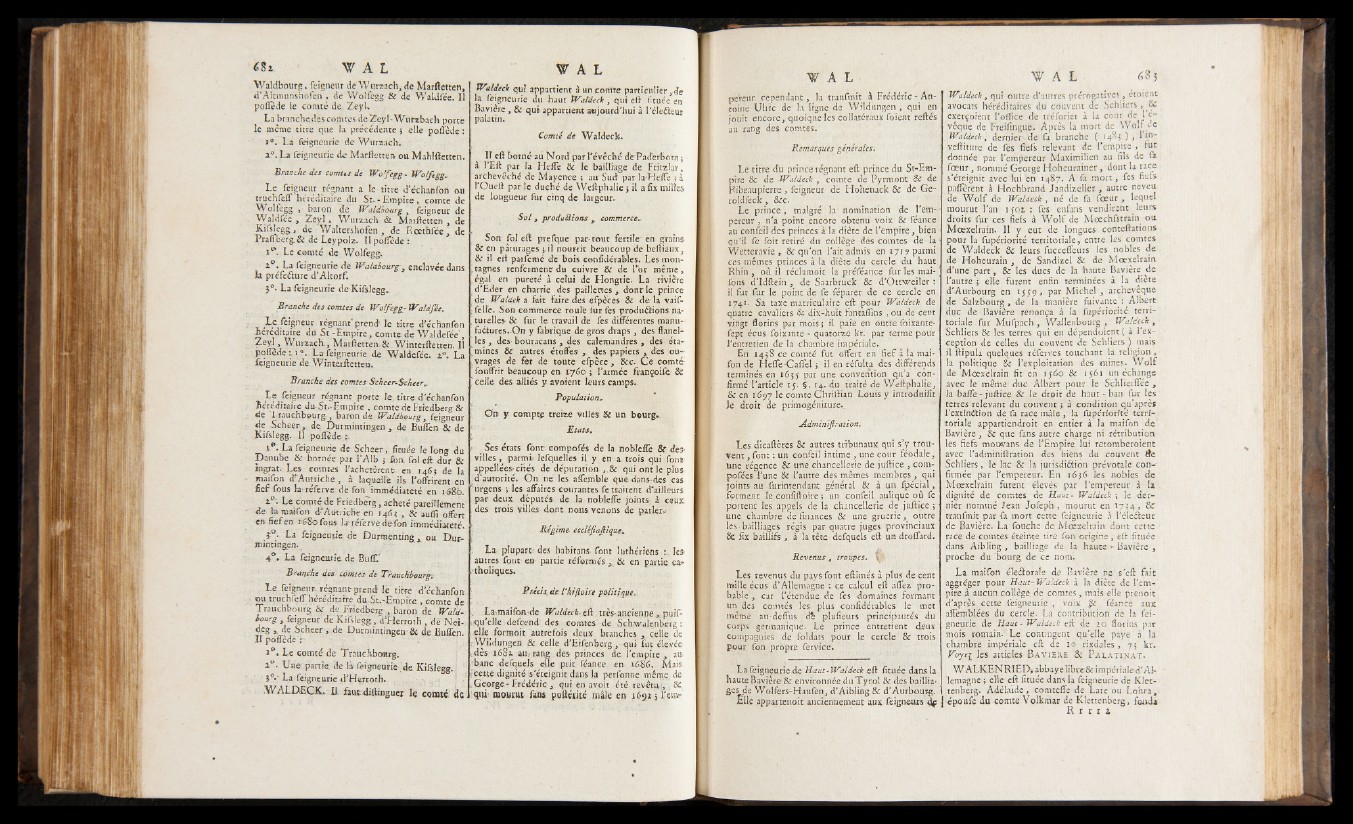 682 W A L
Waldbourg, seigneur de Wurzach, de Marstetten,
d'Altmunshofen, de Wolfegg & de Waldsée. Il
possède le comté de Zeyl.
La branche des comtes de Zeyl-Wurzbach porte
le même titre que la précédente ; elle possède :
1°. La seigneurie de Wurzach.
2°. La seigneurie de Marstetten ou Mahlstetten.
Branche des comtes de Wolfegg-Wolfegg.
Le seigneur régnant a le titre d'échanson ou
truchsess héréditaire du St.-Empire, comte de
Wolfegg, baron de Waldbourg, seigneur de
Waldsée, Zeyl, Wurzach & Marstetten, de
Kisslegg, de Waltershofen, de Rœthsée, de
Prassberg & de Leypolz. Il possède :
1°. Le comté de Wolfegg.
2°. La seigneurie de Waldbourg, enclavée dans
la préfecture d'Altorf.
3°. La seigneurie de Kisslegg.
Branche des comtes de Wolfegg-Waldsée.
Le seigneur régnant prend le titre d'échanson
héréditaire du St-Empire, comte de Waldsée,
Zeyl, Wurzach, Marstetten & Winterstetten. Il
possède : 1°. La seigneurie de Waldsée. 2°. La
seigneurie de Winterstetten.
Branche des comtes Scheer-Scheer.
Le seigneur régnant porte le titre d'échanson
héréditaire du St.-Empire, comte de Friedberg &
de Trauchbourg, baron de Waldbourg, seigneur
de Scheer, de Durmintingen, de Bussen & de
Kisslegg. Il possède :
1°. La seigneurie de Scheer, située le long du
Danube & bornée par l'Alb ; son sol est dur &
ingrat. Les comtes l'achetèrent en 1463 de la
maison d'Autriche, à laquelle ils l'offrirent en
fief sous la réserve de son immédiateté en 1680.
2°. Le comté de Friedberg, acheté pareillement
de la maison d'Autriche en 1463, & aussi offert
en fief en 1680 sous la réserve de son immédiateté.
3°. La seigneurie de Durmenting, ou Durmintingen.
4°. La seigneurie de Buss.
Branche des comtes de Trauchbourg.
Le seigneur régnant prend le titre d'échanson
ou truchsess héréditaire du St.-Empire, comte de
Trauchbourg & de Friedberg, baron de Waldbourg,
seigneur de Kisslegg, d'Herroth, de Neideg,
de Scheer, de Durmintingen & de Bussen.
Il possède :
1°. Le comté de Trauchbourg.
2°. Une partie de la seigneurie de Kisslegg.
3°. La seigneurie d'Herroth.
WALDECK. Il faut distinguer le comté de
W A L
Waldeck qui appartient à un comte particulier, de
la seigneurie du haut Waldeck, qui est située en
Bavière, & qui appartient aujourd'hui à l'électeur
palatin.
Comté de Waldeck.
Il est borné au Nord par l'évêché de Paderborn ;
à l'Est par la Hesse & le bailliage de Fritzlar,
archevêché de Mayence ; au Sud par la Hesse ; à
l'Ouest par le duché de Westphalie ; il a six milles
de longueur sur cinq de largeur.
Sol, productions, commerce.
Son sol est presque par-tout fertile en grains
& en pâturages ; il nourrit beaucoup de bestiaux,
& il est parsemé de bois considérables. Les montagnes
renferment du cuivre & de l'or même,
égal en pureté à celui de Hongrie. La rivière
d'Eder en charrie des paillettes, dont le prince
de Waldeck a fait faire des espèces & de la vaisselle.
Son commerce roule sur ses productions naturelles
& sur le travail de ses différentes manufactures.
On y fabrique de gros draps, des flanelles,
des bouracans, des calemandres, des étamines
& autres étoffes, des papiers, des ouvrages
de fer de toute espèce, &c. Ce comté
souffrit beaucoup en 1760 ; l'armée françoise &
celle des alliés y avoient leurs camps.
Population.
On y compte treize villes & un bourg.
Etats.
Ses états sont composés de la noblesse & des
villes, parmi lesquelles il y en a trois qui sont
appellées cités de députation, & qui ont le plus
d'autorité. On ne les assemble que dans des cas
urgens ; les affaires courantes se traitent d'ailleurs
par deux députés de la noblesse joints à ceux
des trois villes dont nous venons de parler.
Régime ecclésiastique.
La plupart des habitans sont luthériens : les
autres sont en partie réformés, & en partie catholiques.
Précis de l'histoire politique.
La maison de Waldeck est très-ancienne, puisqu'elle
descend des comtes de Schwalenberg :
elle formoit autrefois deux branches, celle de
Wildungen & celle d'Eisenberg, qui fut élevée
dès 1682 au rang des princes de l'empire, au
banc desquels elle prit séance en 1686. Mais
cette dignité s'éteignit dans la personne même de
George-Frédéric, qui en avoit été revêtu, &
qui mourut sans postérité mâle en 1692 ; l'em-
W A L
pereur cependant, la transmit à Frédéric-Antoine
Ulric de la ligne de Wildungen, qui en
jouit encore, quoique les collatéraux soient restés
au rang des comtes.
Remarques générales.
Le titre du prince régnant est prince du St-Empire
& de Waldeck, comte de Pyrmont & de
Ribeaupierre, seigneur de Hohenack & de Geroldseck,
&c.
Le prince, malgré la nomination de l'empereur,
n'a point encore obtenu voix & séance
au conseil des princes à la diète de l'empire, bien
qu'il se soit retiré du collège des comtes de la
Wetteravie, & qu'on l'ait admis en 1719 parmi
ces mêmes princes à la diète du cercle du haut
Rhin, où il réclamoit la préséance sur les maisons
d'Idstein, de Saarbruck & d'Ottweiler :
il fut sur le point de se séparer de ce cercle en
1741. Sa taxe matriculaire est pour Waldeck de
quatre cavaliers & dix-huit fantassins, ou de cent
vingt florins par mois ; il paie en outre soixante-
sept écus soixante-quatorze kr. par terme pour
l'entretien de la chambre impériale.
En 1438 ce comté fut offert en fief à la maison
de Hesse-Cassel ; il en résulta des différends
terminés en 1635 par une convention qu'a confirmé
l'article 15. §. 14. du traité de Westphalie,
& en 1697 le comte Christian Louis y introduisit
le droit de primogéniture.
Administration.
Les dicastères & autres tribunaux qui s'y trouvent,
sont : un conseil intime, une cour féodale,
une régence & une chancellerie de justice, composées
l'une & l'autre des mêmes membres, qui
joints au surintendant général & à un spécial,
forment le consistoire ; un conseil aulique où se
portent les appels de la chancellerie de justice ;
une chambre de finances & une gruerie, outre
les bailliages régis par quatre juges provinciaux
& six baillifs, à la tête desquels est un drossard.
Revenus, troupes.
Les revenus du pays sont estimés à plus de cent
mille écus d'Allemagne : ce calcul est assez probable,
car l'étendue de ses domaines formant
un des comtés les plus considérables le met
même au-dessus de plusieurs principautés du
corps germanique. Le prince entretient deux
compagnies de soldats pour le cercle & trois
pour son propre service.
La seigneurie de Haut-Waldeck est située dans la
haute Bavière & environnée du Tyrol & des bailliages
de Wolfers-Hausen, d'Aibling & d'Aurbourg.
Elle appartenoit anciennement aux seigneurs de
W A L 683
Waldeck, qui outre d'autres prérogatives, étoient
avocats héréditaires du couvent de Schliers, &
exerçoient l'office de trésorier à la cour de l'évêque
de Freisingue. Après la mort de Wolf de
Waldeck, dernier de sa branche (1483), l'investiture
de ses fiefs relevant de l'empire, fut
donnée par l'empereur Maximilien au fils de sa
sœur, nommé George Hoheurainer, dont la race
s'éteignit avec lui en 1487. A sa mort, ses fiefs
passèrent à Hochbrand Sandizeller, autre neveu
de Wolf de Waldeck, né de sa sœur, lequel
mourut l'an 1502 : ses enfans vendirent leurs
droits sur ces fiefs à Wolf de Mœchstrain ou
Mœxelrain. Il y eut de longues contestations
pour la supériorité territoriale, entre les comtes
de Waldeck & leurs successeurs les nobles de
de Hoheurain, de Sandizel & de Mœxelrain
d'une part, & les ducs de la haute Bavière de
l'autre ; elle furent enfin terminées à la diète
d'Ausbourg en 1559, par Michel, archevêque
de Salzbourg, de la manière suivante : Albert
duc de Bavière renonça à la supériorité territoriale
sur Musbach, Wallenbourg, Waldeck,
Schliers & les terres qui en dépendoient (à l'exception
de celles du couvent de Schliers) mais
il stipula quelques réserves touchant la religion,
la politique & l'exploitation des mines. Wolf
de Mœxelrain fit en 1560 & 1561 un échange
avec le même duc Albert pour le Schliersée,
la basse-justice & le droit de haut-ban sur les
terres relevant du couvent ; à condition qu'après
l'extinction de sa race mâle, la supériorité territoriale
appartiendroit en entier à la maison de
Bavière, & que sans autre charge ni rétribution
les fiefs mouvans de l'Empire lui retomberoient
avec l'administration des biens du couvent de
Schliers, le lac & la jurisdiction prévotale confirmée
par l'empereur. En 1636 les nobles de
Mœxelrain furent élevés par l'empereur à la
dignité de comtes de Haut-Waldeck ; le dernier
nommé Jean Joseph, mourut en 1734, &
transmit par sa mort cette seigneurie à l'électeur
de Bavière. La souche de Mœxelrain dont cette
race de comtes éteinte tire son origine, est située
dans Aibling, bailliage de la haute-Bavière,
proche du bourg de ce nom.
La maison électorale de Bavière ne s'est fait
aggréger pour Haut-Waldeck à la diète de l'empire
à aucun collège de comtes, mais elle prenoit
d'après cette seigneurie, voix & séance aux
assemblées du cercle. La contribution de la seigneurie
de Haut-Waldeck est de 20 florins par
mois romain. Le contingent qu'elle paye à la
chambre impériale est de 10 rixdales, 73 kr.
Voyez les articles BAVIERE & PALATINAT.
WALKENRIED, abbaye libre & impériale d'Allemagne ;
elle est située dans la seigneurie de Klettenberg.
Adélaude, comtesse de Lare ou Lohra,
épouse du comte Volkmar de Klettenberg, fonda
R r r r 2